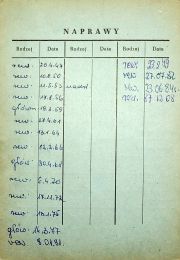 NAPRAWY
Rodzaj Data Rodzaj Data Rodzaj Data
rew. 20.4.47 rew. 23.9.79
rew. 10.8.50 rew. 27.07.82
rew. 11.5.53 rew. 23.06.84
rew. 14.8.56 rew. 07.12.08
główna 18.2.59
rew. 17.4.61
rew. 13.1.64
rew.
główn. 30.4.68
rew. 6.4.70
rew. 17.11.72
rew. 15.1.75
główn. 14.3.77
rew. 8.01.81.